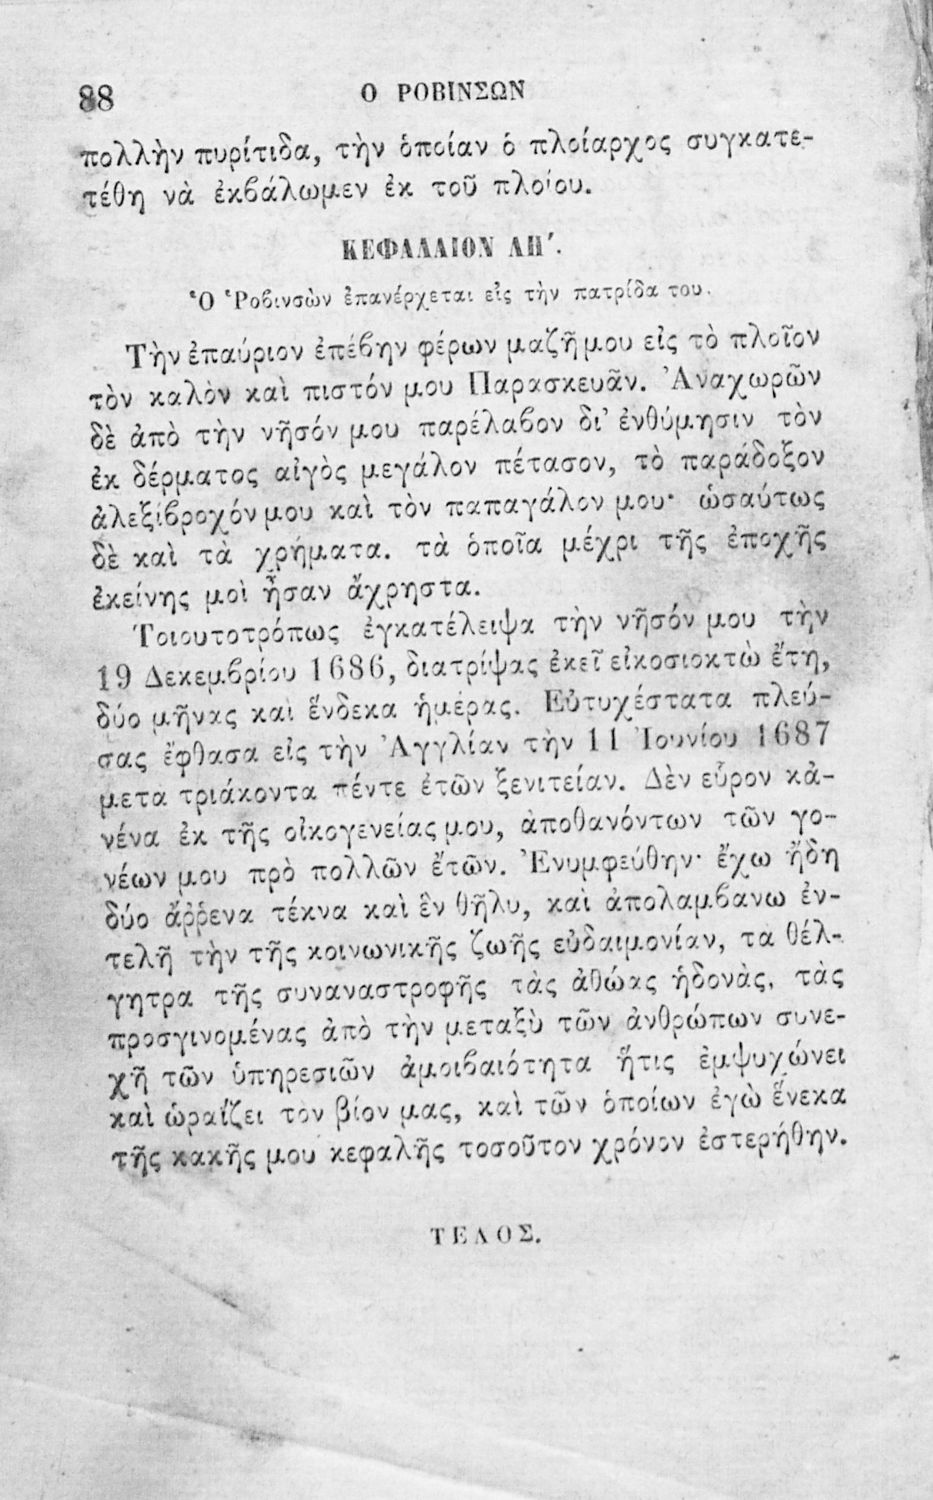 88
Ο ΡΟΒΙΝΣΩΝ
πολλὴν πυρίτιδα, τὴν ὁποίαν ὁ πλοίαρχος συγκατε-
τέθη νὰ ἐκβάλωμεν ἐκ τοῦ πλοίου.
ΚΕΦΑΛΑΙΟΝ ΛΗ΄.
Ὁ Ῥοβινσὼν ἐπανέρχεται εἰς τὴν πατρίδα του.
Τὴν ἐπαύριον ἐπέβην φέρων μαζῆ μου εἰς τὸ πλοῖον
τὸν καλὸν καὶ πιστόν μου Παρασκευᾶν. Ἀναχωρῶν
δὲ ἀπὸ τὴν νῆσόν μου παρέλαβον δι' ἐνθύμησιν τὸν
ἐκ δέρματος αἰγὸς μεγάλον πέτασον, τὸ παράδοξον
ἀλεξίβροχόν μου καὶ τὸν παπαγάλον μου· ὡσαύτως
δὲ καὶ τὰ χρήματα. τὰ ὁποῖα μέχρι τῆς ἐποχῆς
ἐκείνης μοὶ ἦσαν ἄχρηστα.
Τοιουτοτρόπως ἐγκατέλειψα τὴν νῆσόν μου τὴν
19 Δεκεμβρίου 1686, διατρίψας ἐκεῖ εἰκοσιοκτὼ ἔτη,
δύο μῆνας καὶ ἕνδεκα ἡμέρας. Εὐτυχέστατα πλεύ-
σας ἔφθασα εἰς τὴν Ἀγγλίαν τὴν 11 Ἰουνίου 1687
μετα τριάκοντα πέντε ἐτῶν ξενιτείαν. Δὲν εὗρον κἀ-
νένα ἐκ τῆς οἰκογενείας μου, ἀποθανόντων τῶν γο-
νέων μου πρὸ πολλῶν ἔτῶν. Ἐνυμφεύθην· ἔχω ἤδη
δύο ἄῤῥενα τέκνα καὶ ἓν θῆλυ, καὶ ἀπολαμβανω ἐν-
τελῆ τὴν τῆς κοινωνικῆς ζωῆς εὐδαιμονίαν, τα θέλ-
γητρα τῆς συναναστροφῆς τὰς ἀθώας ἡδονὰς, τὰς
προσγινομένας ἀπὸ τὴν μεταξὺ τῶν ἀνθρώπων συνε-
χῆ τῶν ὑπηρεσιῶν ἀμοιβαιότητα ἥτις ἐμψυχώνει
καὶ ὡραΐζει τὸν βίον μας, καὶ τῶν ὁποίων ἐγὼ ἕνεκα
τῆς κακῆς μου κεφαλῆς τοσοῦτον χρόνον ἐστερήθην.
ΤΕΛΟΣ.